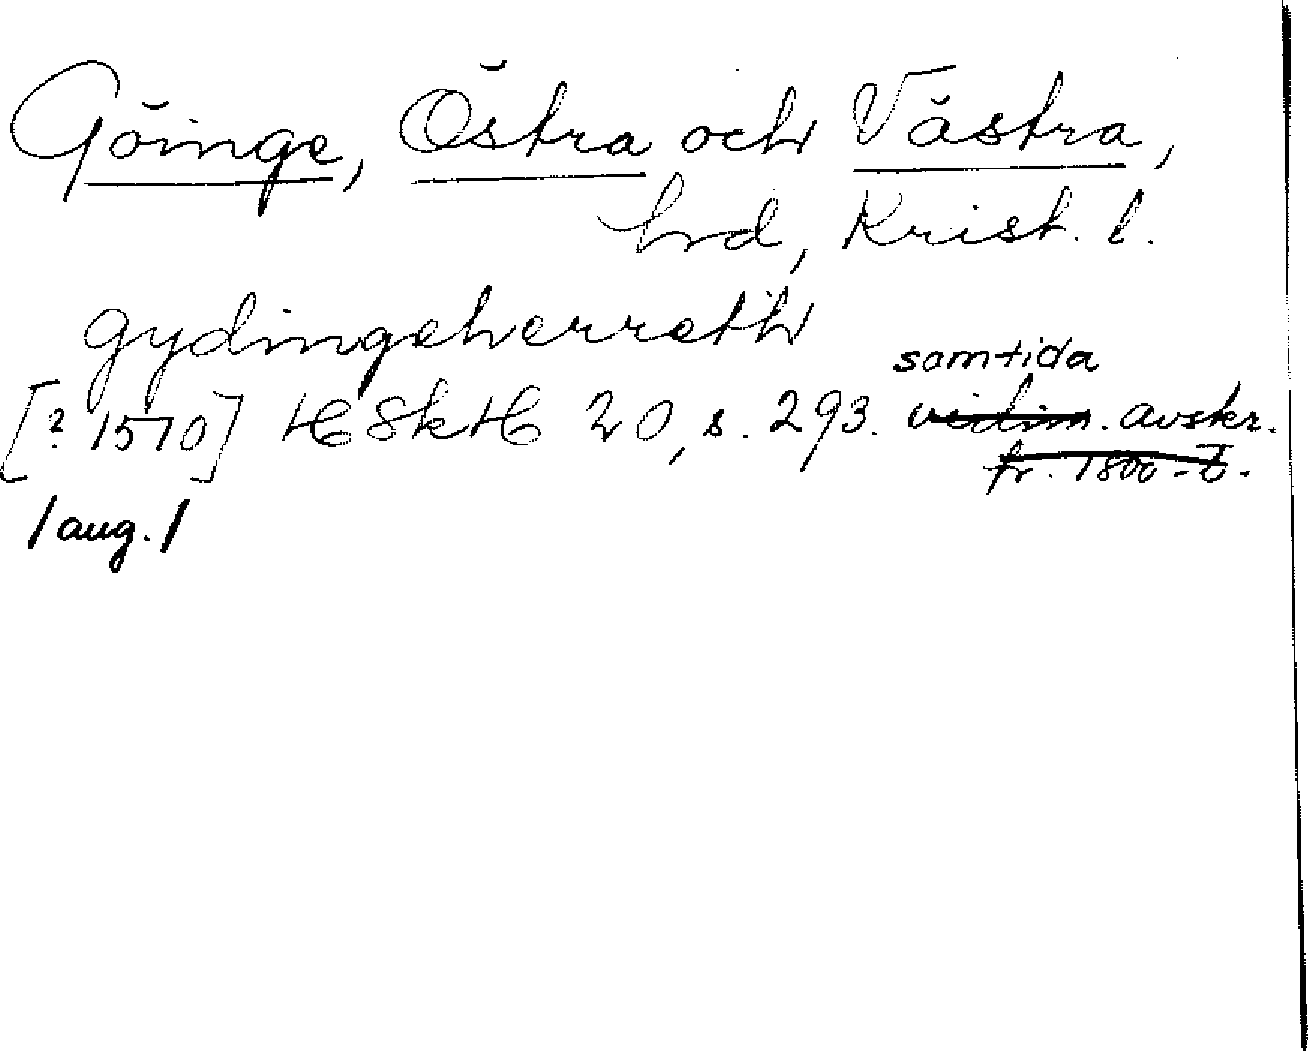 Göinge, Östra och Västra,
hrd, Krist. l.
gydingeherreth
samtida
[? 1570] HSkH 20, s. 293. vidim. avskr.
fr. 1800-t.
/aug./